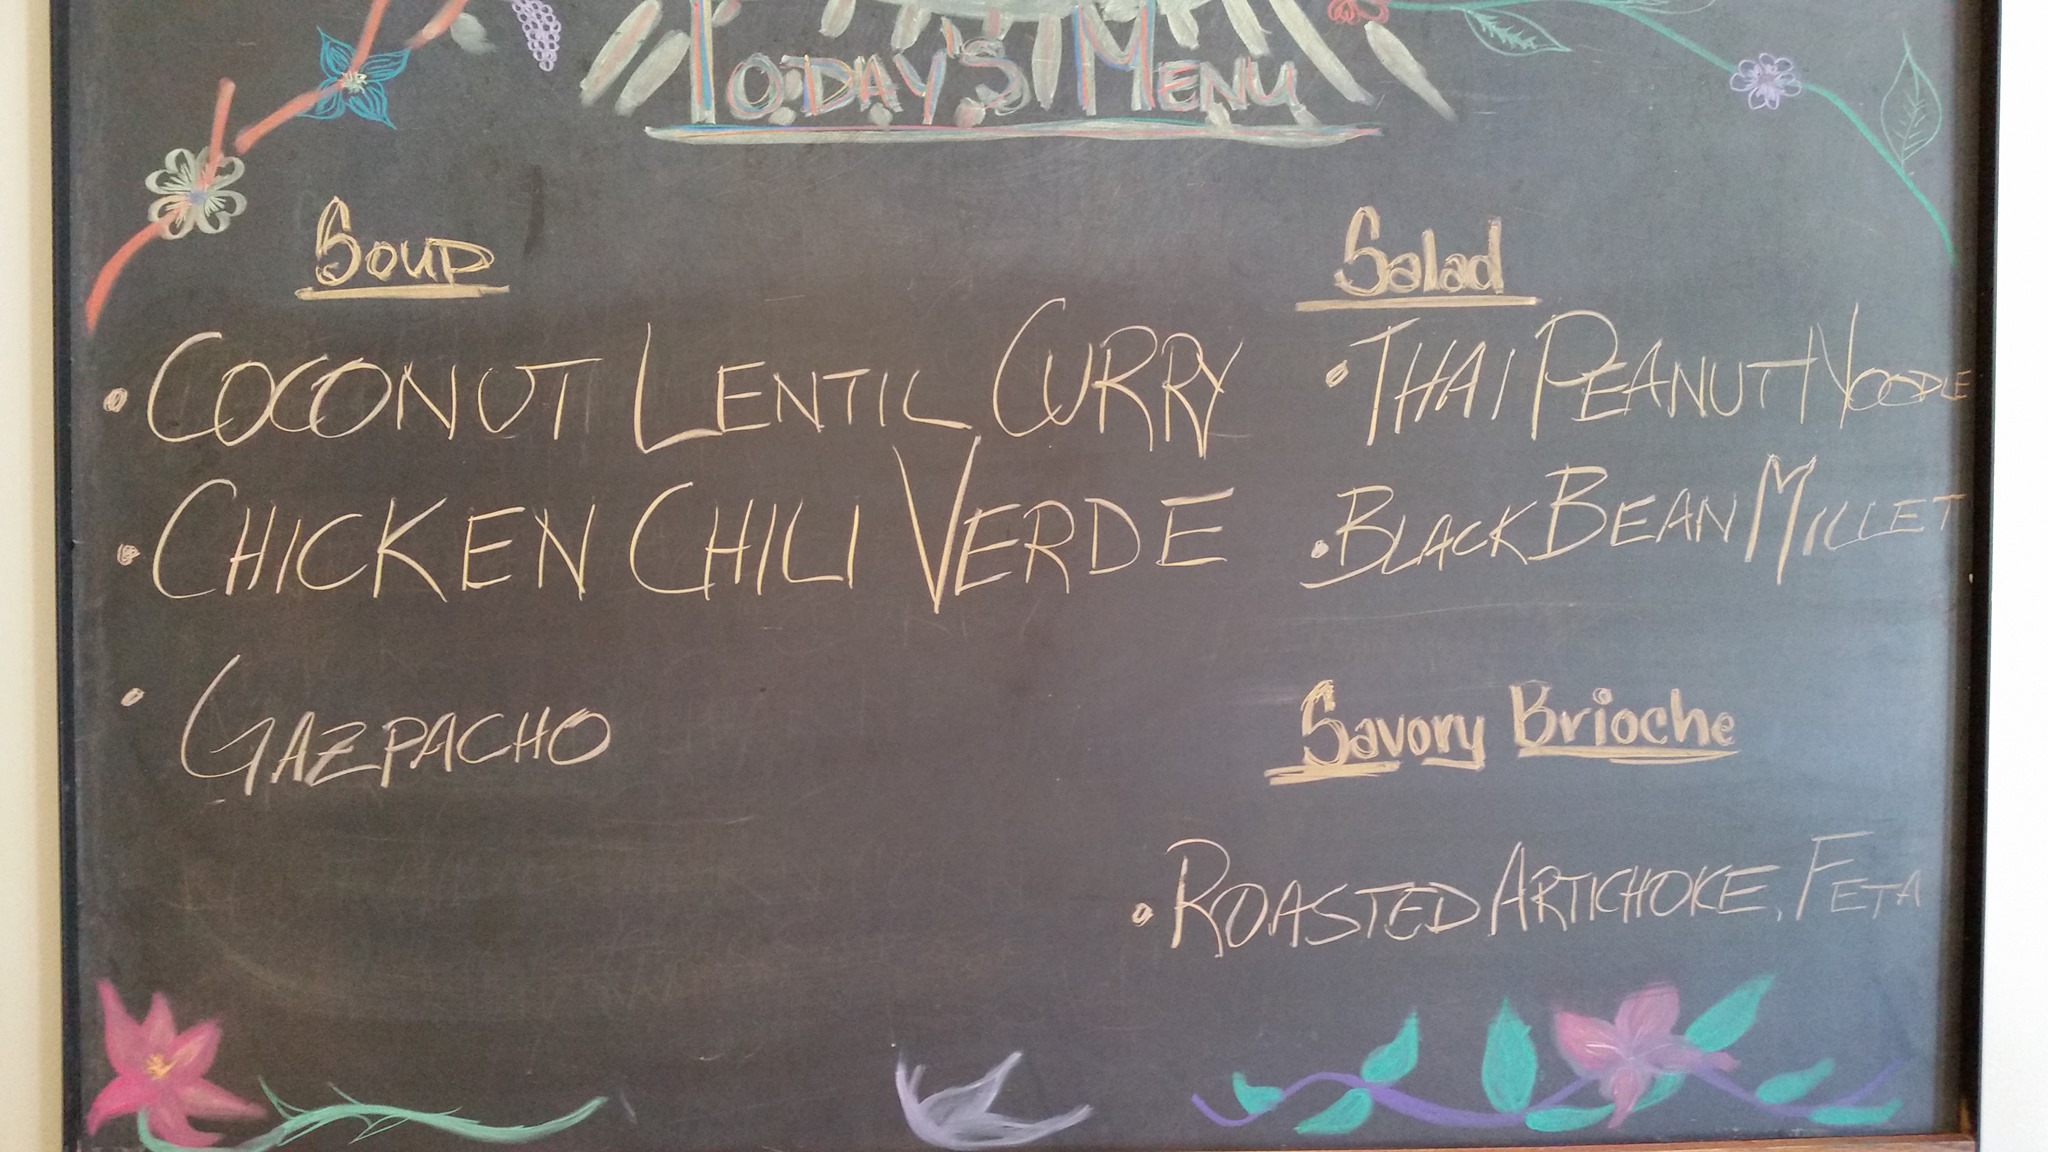 Today's Menu
Soup
• Coconut Lentil Curry
• Chicken Chili Verde
• Gazpacho
Salad
• Thai Peanut Noodle
• Black Bean Millet
Savory Brioche
• Roasted Artichoke, Feta